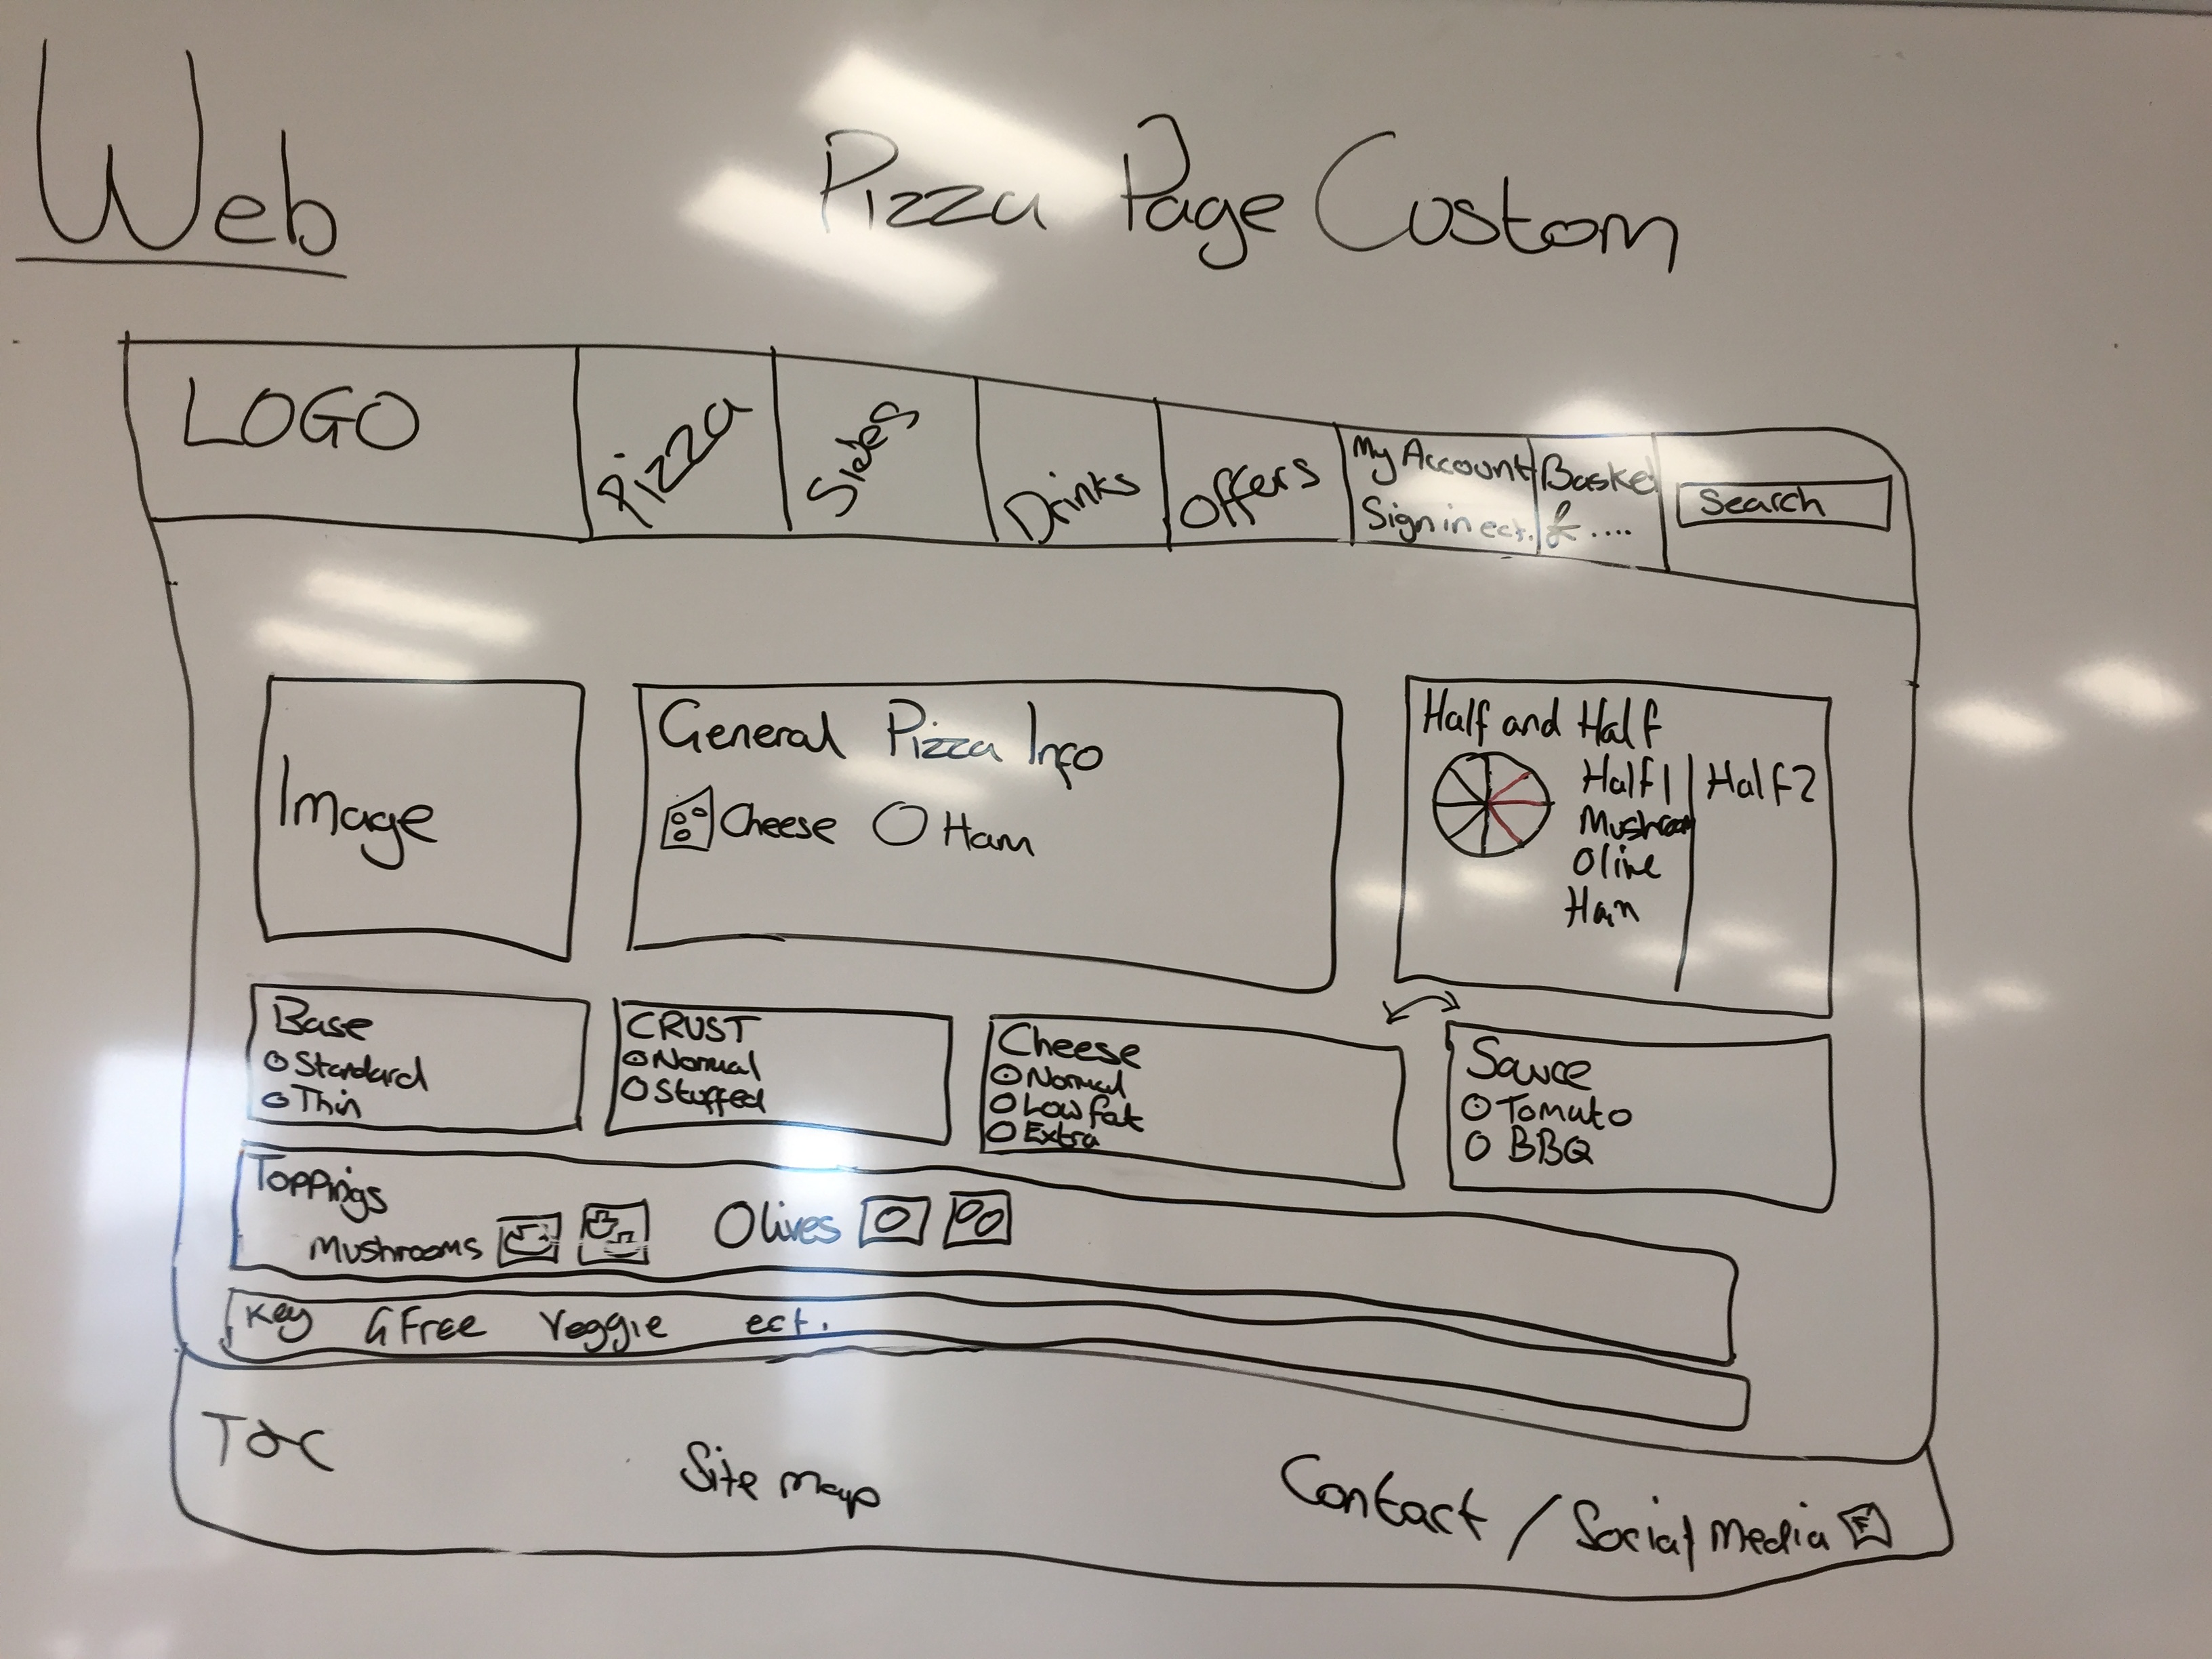 Web
Pizza Page Custom
LOGO
Pizza
Sides
Drinks
Offers
My Account
Sign in ect.
Basket
£ ....
Search
Image
General Pizza Info
Cheese Ham
Half and Half
Half 1 Half 2
Mushroom
Olive
Ham
Base
Standard
Thin
CRUST
Normal
Stuffed
Cheese
Normal
Low fat
Extra
Sauce
Tomato
BBQ
Toppings
Mushrooms Olives
Key G Free Veggie ect.
T&C
Site map
Contact / Social Media F